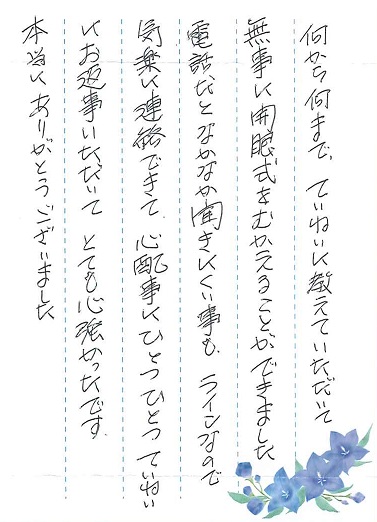 何から何まで、ていねいに教えていただいて
無事に開眼式をむかえることができました
電話だとなかなか聞きにくい事も ラインなので
気楽に連絡できて、心配事にひとつひとつていねい
にお返事いただいて とても心強かったです。
本当に ありがとうございました